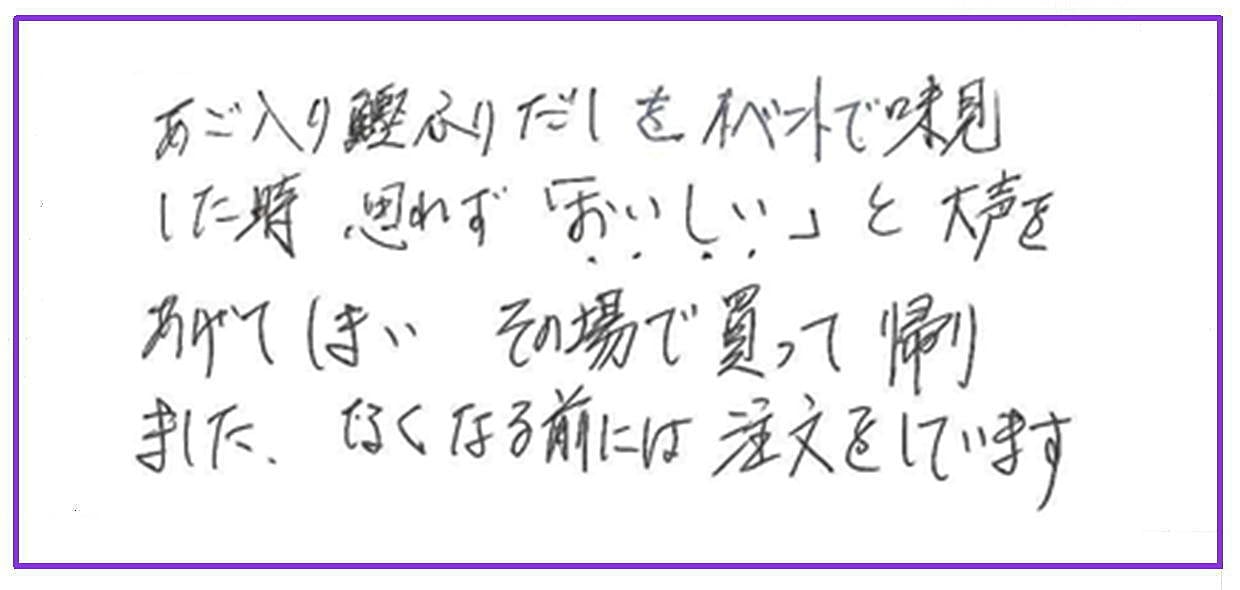 あご入り鰹ふりだしをイベントで味見
した時 思れず「おいしい」と大声を
あげてしまい その場で買って帰り
ました、なくなる前には注文をしています